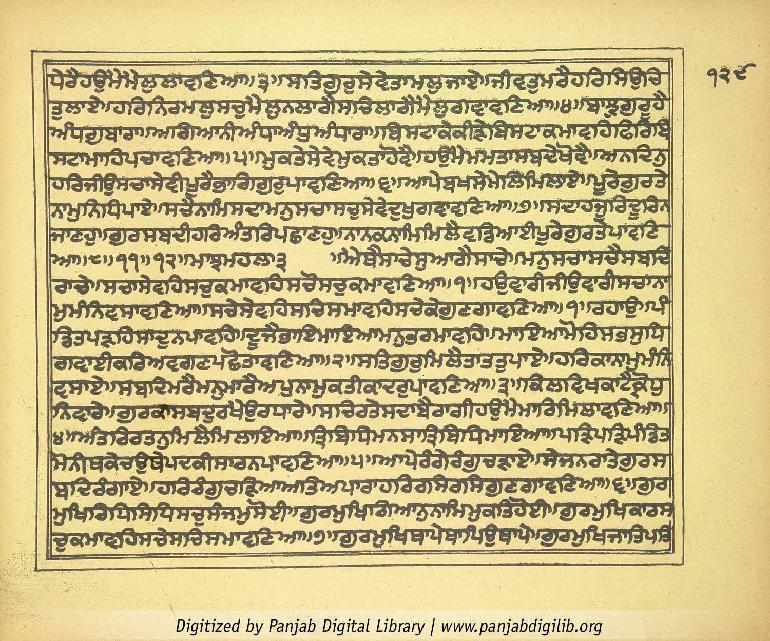 ੧੨੯
ਪੇਰੈਹਉਮੈਮੈਲੁਲਾਵਣਿਆ॥੩॥ਸਤਿਗੁਰੁਸੇਵੇਤਾਮਲੁਜਾਏ॥ਜੀਵਤੁਮਰੈਹਰਿਸਿਉਚਿ
ਤੁਲਾਏ॥ਹਰਿਨਿਰਮਲੁਸਚੁਮੈਲੁਨਲਾਗੈਸਚਿਲਾਗੈਮੈਲੁਗਵਾਵਣਿਆ॥੪॥ਬਾਝੁਗੁਰੂਹੈ
ਅੰਧਗੁਬਾਰਾ॥ਅਗਿਆਨੀਅੰਧਾਅੰਧੁਅੰਧਾਰਾ॥ਬਿਸਟਾਕੇਕੀੜੇਬਿਸਟਾਕਮਾਵਹਿਫਿਰਿਬਿ
ਸਟਾਮਾਹਿਪਚਾਵਣਿਆ॥੫॥ਮੁਕਤੇਸੇਵੇਮੁਕਤਾਹੋਵੈ॥ਹਉਮੈਮਮਤਾਸਬਦੇਖੋਵੈ॥ਅਨਦਿਨੁ
ਹਰਿਜੀਉਸਚਾਸੇਵੀਪੂਰੈਭਾਗਿਗੁਰੁਪਾਵਣਿਆ॥੬॥ਆਪੇਬਖਸੇਮੇਲਿਮਿਲਾਏ॥ਪੂਰੇਗੁਰਤੇ
ਨਾਮੁਨਿਧਿਪਾਏ॥ਸਚੈਨਾਮਿਸਦਾਮਨੁਸਚਾਸਚੁਸੇਵੇਦੁਖੁਗਵਾਵਣਿਆ॥੭॥ਸਦਾਹਜੂਰਿਦੂਰਿਨ
ਜਾਣਹੁ॥ਗੁਰਸਬਦੀਹਰਿਅੰਤਰਿਪਛਾਣਹੁ॥ਨਾਨਕਨਾਮਿਮਿਲੈਵਡਿਆਈਪੂਰੇਗੁਰਤੇਪਾਵਣਿ
ਆ॥੮॥੧੧॥੧੨॥ਮਾਝਮਹਲਾ੩ ॥ਐਥੈਸਾਚੇਸੁਆਗੈਸਾਚੇ॥ਮਨੁਸਚਾਸਚੈਸਬਦਿ
ਰਾਚੇ॥ਸਚਾਸੇਵਹਿਸਚੁਕਮਾਵਹਿਸਚੋਸਚੁਕਮਾਵਣਿਆ॥੧॥ਹਉਵਾਰੀਜੀਉਵਾਰੀਸਚਾਨਾ
ਮੁਮੰਨਿਵਸਾਵਣਿਆ॥ਸਚੇਸੇਵਹਿਸਚਿਸਮਾਵਹਿਸਚੇਕੇਗੁਣਗਾਵਣਿਆ॥੧॥ਰਹਾਉ॥ਪੰ
ਡਿਤਪੜਹਿਸਾਦੁਨਪਾਵਹਿ॥ਦੂਜੈਭਾਇਮਾਇਆਮਨੁਭਰਮਾਵਹਿ॥ਮਾਇਆਮੋਹਿਸਭਸੁਧਿ
ਗਵਾਈਕਰਿਅਵਗਣਪਛੋਤਾਵਣਿਆ॥੨॥ਸਤਿਗੁਰੁਮਿਲੈਤਾਤਤੁਪਾਏ॥ਹਰਿਕਾਨਾਮੁਮੰਨਿ
ਵਸਾਏ॥ਸਬਦਿਮਰੈਮਨੁਮਾਰੈਅਪੁਨਾਮੁਕਤੀਕਾਦਰੁਪਾਵਣਿਆ॥੩॥ਕਿਲਵਿਖਕਾਟੈਕ੍ਰੋਧੁ
ਨਿਵਾਰੇ॥ਗੁਰਕਾਸਬਦੁਰਖੈਉਰਧਾਰੇ॥ਸਚਿਰਤੇਸਦਾਬੈਰਾਗੀਹਉਮੈਮਾਰਿਮਿਲਾਵਣਿਆ॥
੪॥ਅੰਤਰਿਰਤਨੁਮਿਲੈਮਿਲਾਇਆ॥ਤ੍ਰਿਬਿਧਿਮਨਸਾਤ੍ਰਿਬਿਧਿਮਾਇਆ॥ਪੜਿਪੜਿਪੰਡਿਤ
ਮੋਨੀਥਕੇਚਉਥੇਪਦਕੀਸਾਰਨਪਾਵਣਿਆ॥੫॥ਆਪੇਰੰਗੇਰੰਗੁਚੜਾਏ॥ਸੇਜਨਰਾਤੇਗੁਰਸ
ਬਦਿਰੰਗਾਏ॥ਹਰਿਰੰਗੁਚੜਿਆਅਤਿਅਪਾਰਾਹਰਿਰਸਿਰਸਿਗੁਣਗਾਵਣਿਆ॥੬॥ਗੁਰ
ਮੁਖਿਰਿਧਿਸਿਧਿਸਚੁਸੰਜਮੁਸੋਈ॥ਗੁਰਮੁਖਿਗਿਆਨੁਨਾਮਿਮੁਕਤਿਹੋਈ॥ਗੁਰਮੁਖਿਕਾਰਸ
ਚੁਕਮਾਵਹਿਸਚੇਸਚਿਸਮਾਵਣਿਆ॥੭॥ਗੁਰਮੁਖਿਥਾਪੇਥਾਪਿਉਥਾਪੇ॥ਗੁਰਮੁਖਿਜਾਤਿਪਤਿ
Digitized by Panjab Digital Library | www.panjabdigilib.org